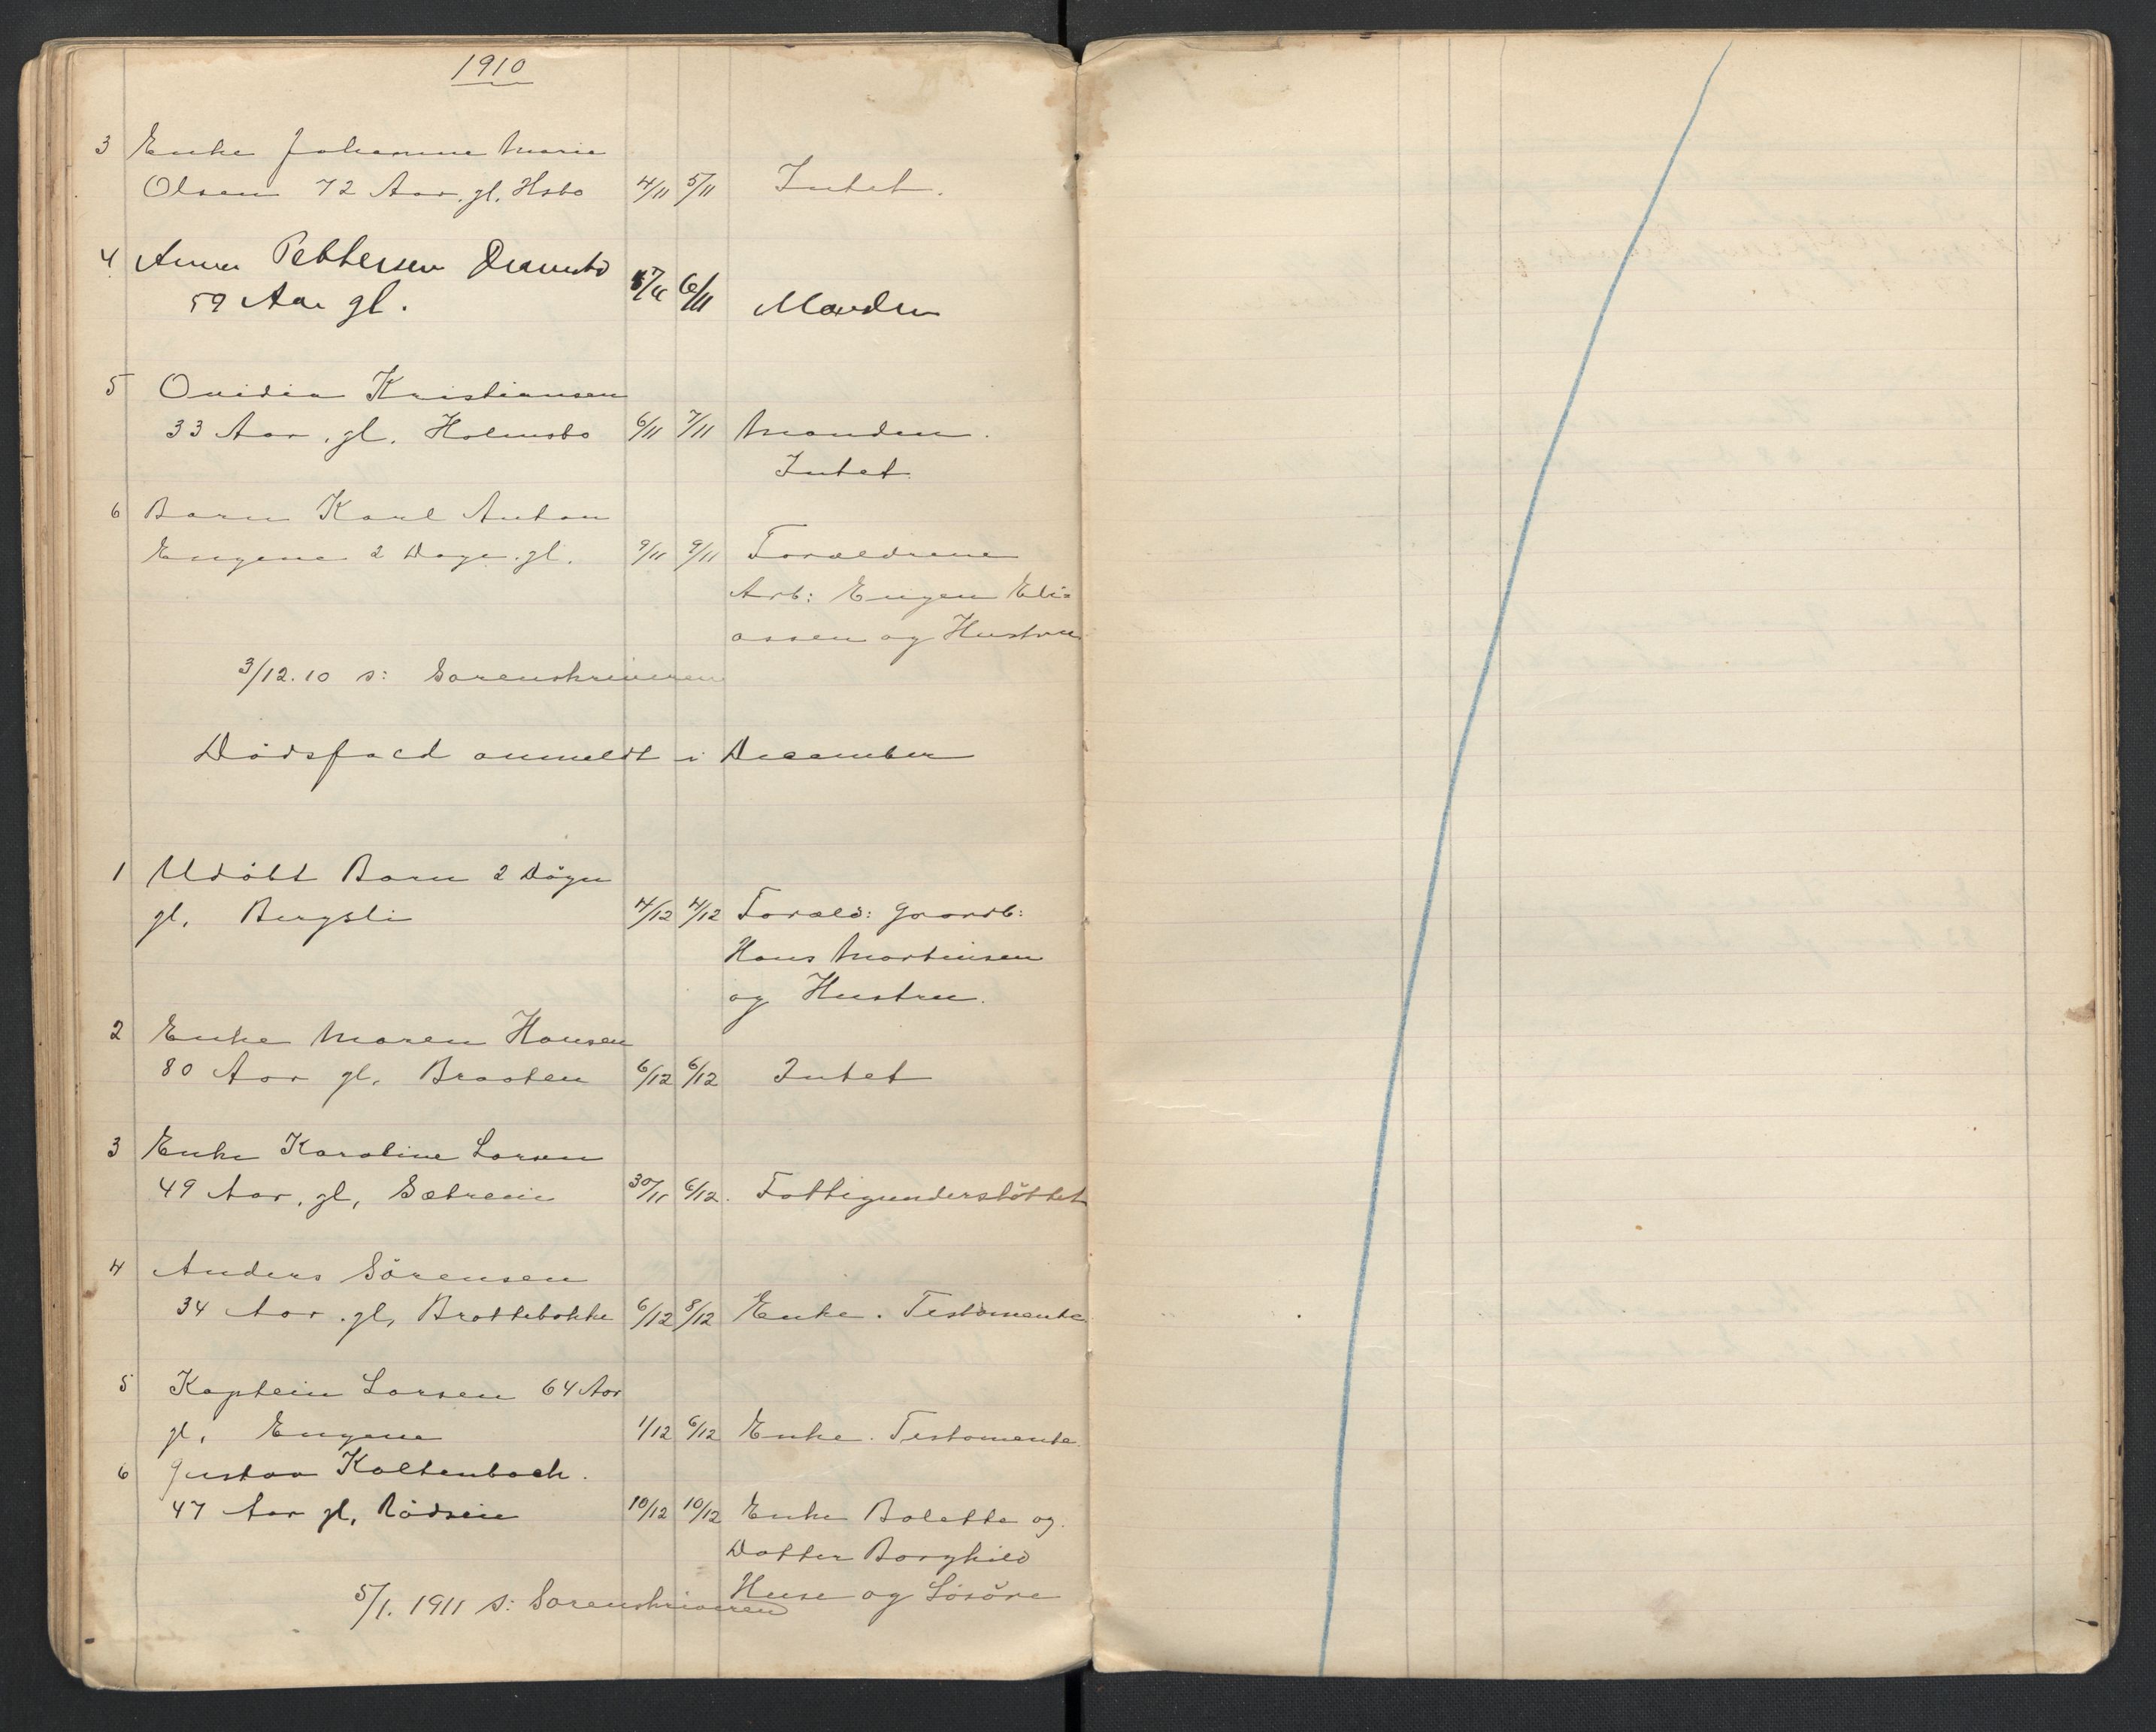 1910
3 Enke Johanne Marie
Olsen 72 Aar. gl. Hsbo 4/11 5/11 Intet.
4 Anna Pettersen Dramsto
59 Aar gl. 5/11 6/11 Manden
5 Ovidia Kristiansen
33 Aar. gl. Holmsbo 6/11 7/11 Manden.
Intet
6 Barn Karl Anton
Engene 2 Dage. gl. 9/11 9/11 Forældrene
Arb: Eugen Eli-
assen og Hustru
3/12.10 s: Sorenskriveren
Dödsfald anmeldt i December
1 Udöbt Barn 2 Dögn
gl. Bergsli 4/12 4/12 Foræld: Gaardb:
Hans Martinsen
og Hustru.
2 Enke Maren Hansen
80 Aar gl. Braaten 6/12 6/12 Intet
3 Enke Karoline Larsen
49 Aar. gl, Sætreeie 30/11 6/12. Fattigunderstöttet
4 Anders Sörensen
34 Aar. gl, Brattebakke 6/12 8/12 Enke. Testamente
5 Kaptein Larsen 64 Aar
gl. Engene 1/12 6/12 Enke. Testamente.
6 Gustav Kaltenbach.
47 Aar gl, Rödseie 10/12 10/12 Enke Bolette og
Datter Borghild
Huse og Lösöre
5/1. 1911 s: Sorenskriveren